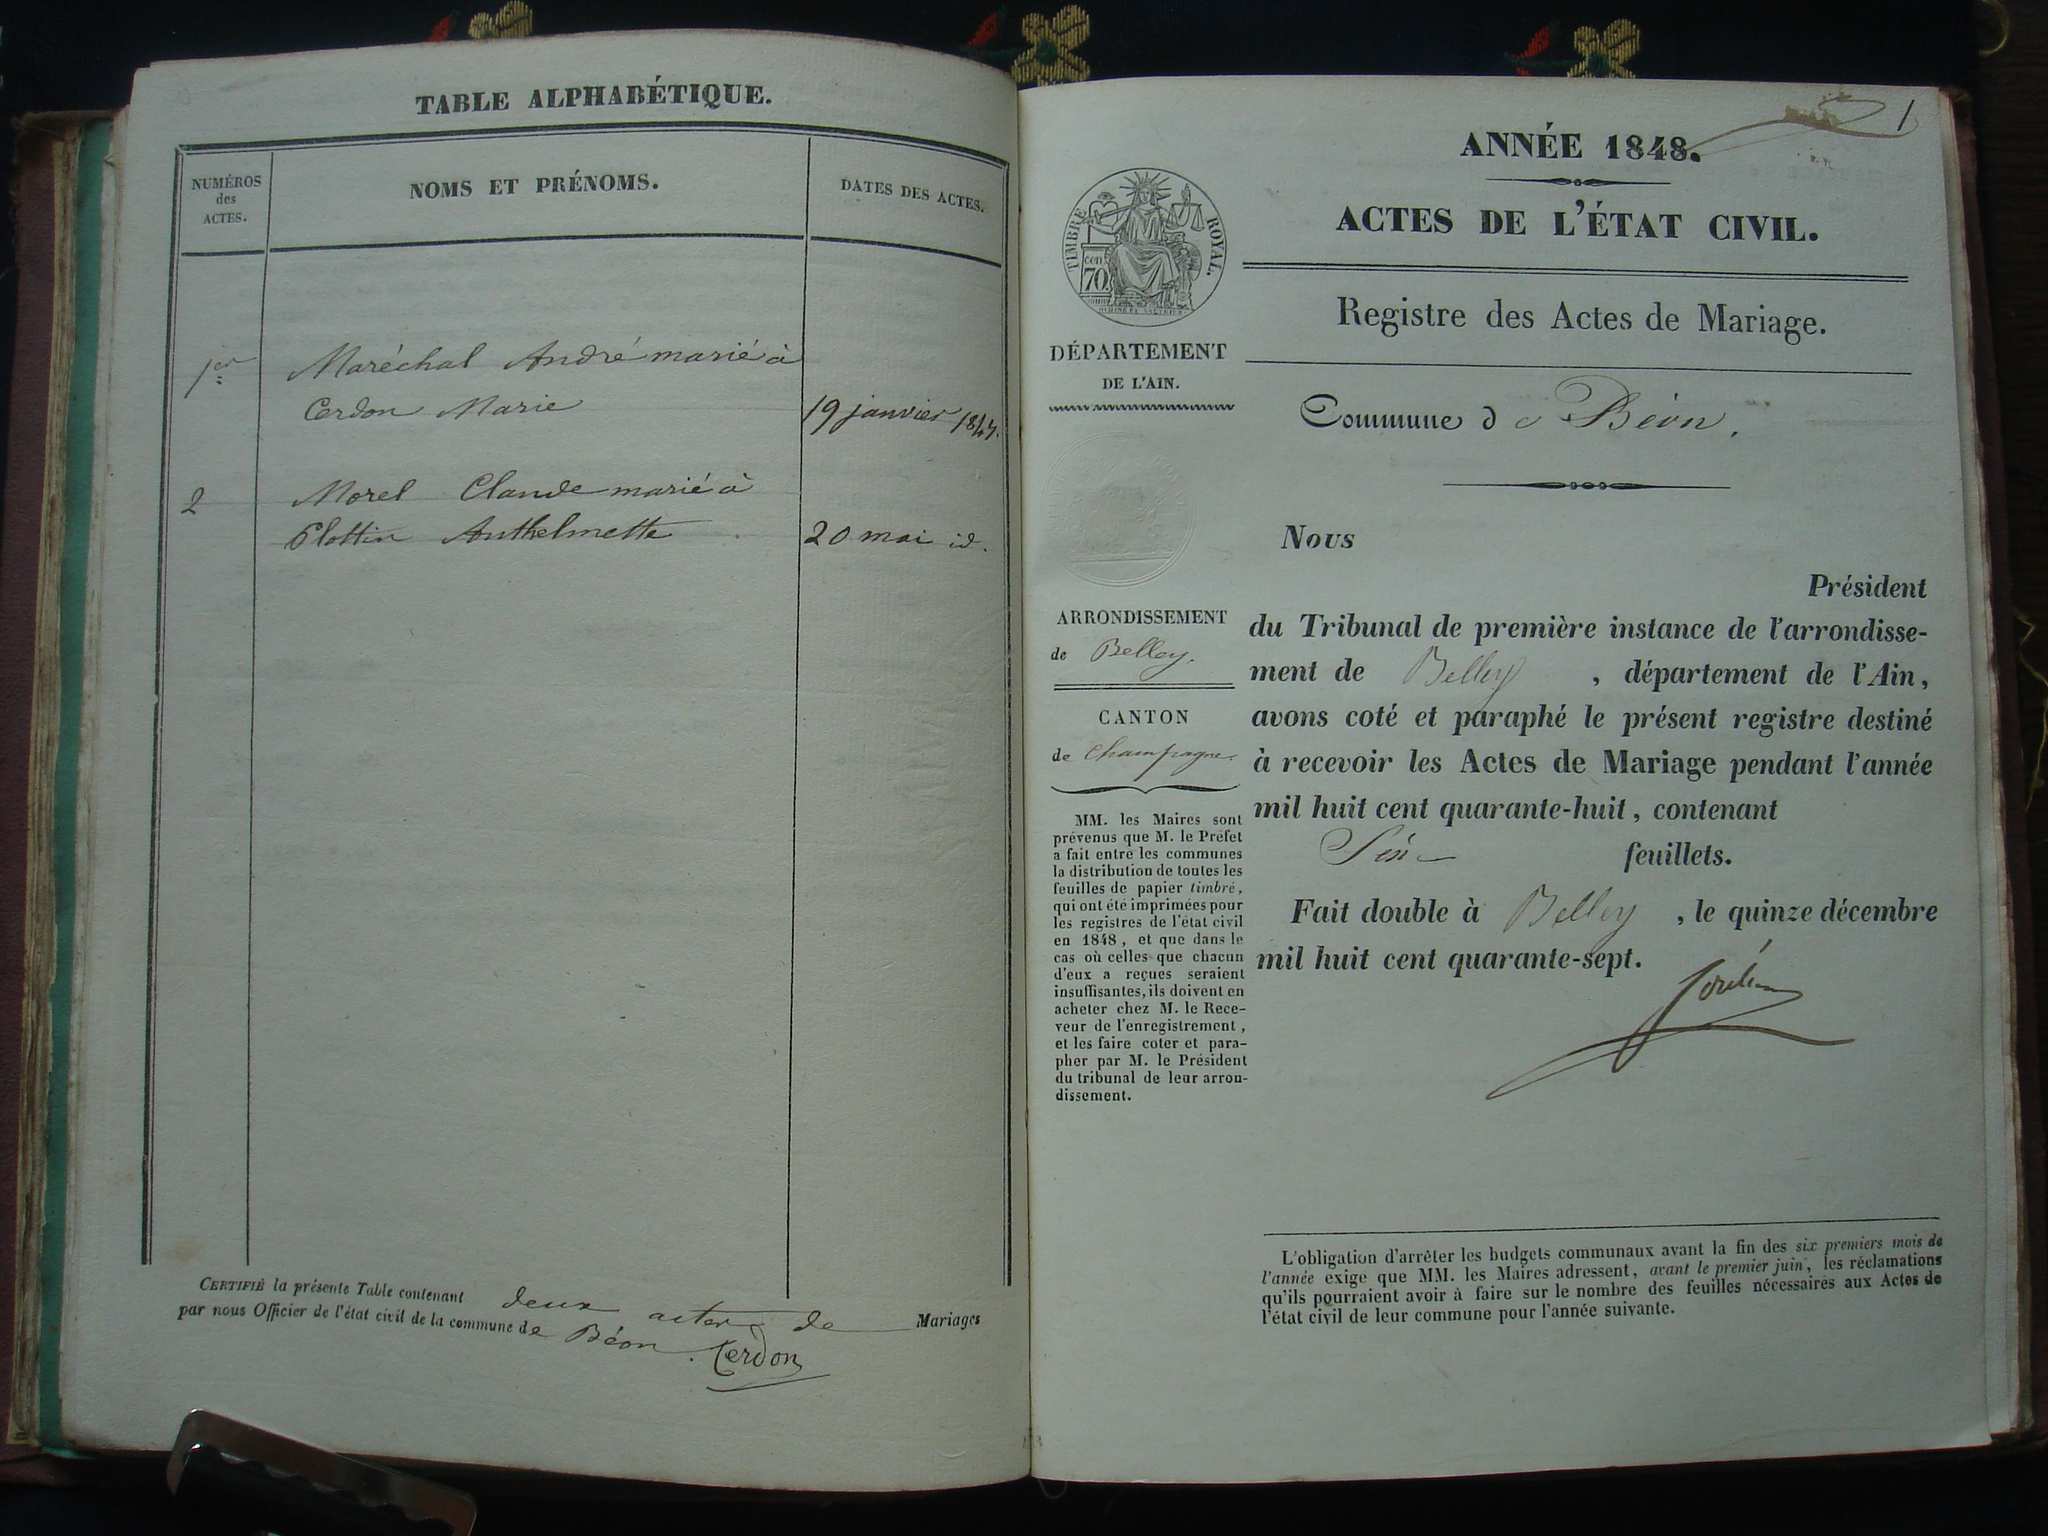 TABLE ALPHABÉTIQUE.
NUMÉROS
des
ACTES.
NOMS ET PRÉNOMS.
DATES DES ACTES.
1er
Maréchal André marié à
Cerdon Marie
19 janvier 1847.
2
Morel Claude marié à
Plottin Anthelmette
20 mai id.
CERTIFIÉ la présente Table contenant deux actes de Mariages
par nous Officier de l'état civil de la commune de Béon.
Cerdon
1
ANNÉE 1848.
ACTES DE L'ÉTAT CIVIL.
TIMBRE ROYAL.
cen
70.
Registre des Actes de Mariage.
DÉPARTEMENT
DE L'AIN.
Commune de Béon.
ARRONDISSEMENT
de Belley.
CANTON
de Champagne.
MM. les Maires sont
prévenus que M. le Préfet
a fait entre les communes
la distribution de toutes les
feuilles de papier timbré,
qui ont été imprimées pour
les registres de l'état civil
en 1848, et que dans le
cas où celles que chacun
d'eux a reçues seraient
insuffisantes, ils doivent en
acheter chez M. le Rece-
veur de l'enregistrement,
et les faire coter et para-
pher par M. le Président
du tribunal de leur arron-
dissement.
Nous
Président
du Tribunal de première instance de l'arrondisse-
ment de Belley, département de l'Ain,
avons coté et paraphé le présent registre destiné
à recevoir les Actes de Mariage pendant l'année
mil huit cent quarante-huit, contenant
feuillets.
Fait double à Belley, le quinze décembre
mil huit cent quarante-sept.
L'obligation d'arrêter les budgets communaux avant la fin des six premiers mois de
l'année exige que MM. les Maires adressent, avant le premier juin, les réclamations
qu'ils pourraient avoir à faire sur le nombre des feuilles nécessaires aux Actes de
l'état civil de leur commune pour l'année suivante.